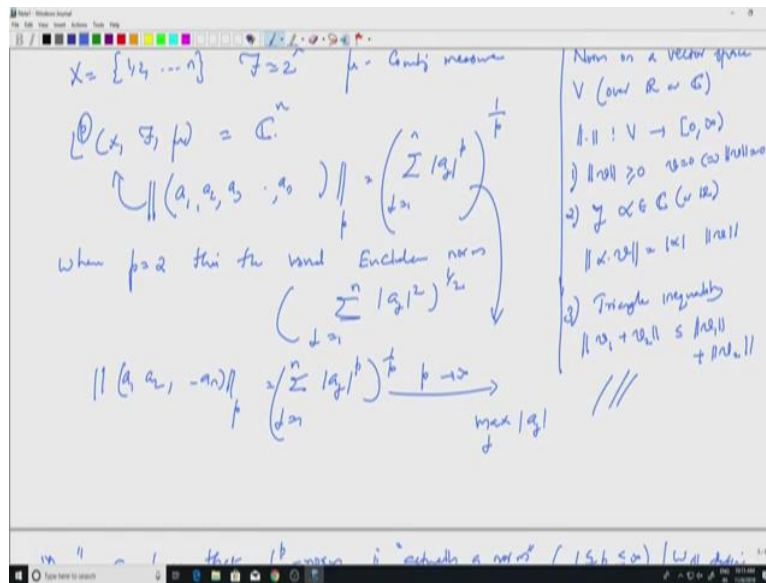 Note1 - Windows Journal
X = {1,2, ... n} F = 2^n μ - measure
L^p (X, F, μ) = ℂ^n
||(a_1, a_2, a_3 ., a_n)||_p = (Σ_{j=1}^n |a_j|^p)^{1/p}
when p=2 this the usual Euclidean norm
(Σ_{j=1}^n |a_j|^2)^{1/2}
||(a_1 a_2, -a_n)||_p = (Σ_{j=1}^n |a_j|^p)^{1/p} p → ∞
max_j |a_j|
Norm on a vector space
V (over R or ℂ)
||.|| : V → [0, ∞)
1) ||v|| ≥ 0 v=0 ⇔ ||v||=0
2) If α ∈ ℂ (or R)
||α.v|| = |α| ||v||
3) Triangle inequality
||v_1 + v_2|| ≤ ||v_1||
+ ||v_2||
///
the L^p norm is "actually a norm" (1 ≤ p ≤ ∞) / Will
Type here to search